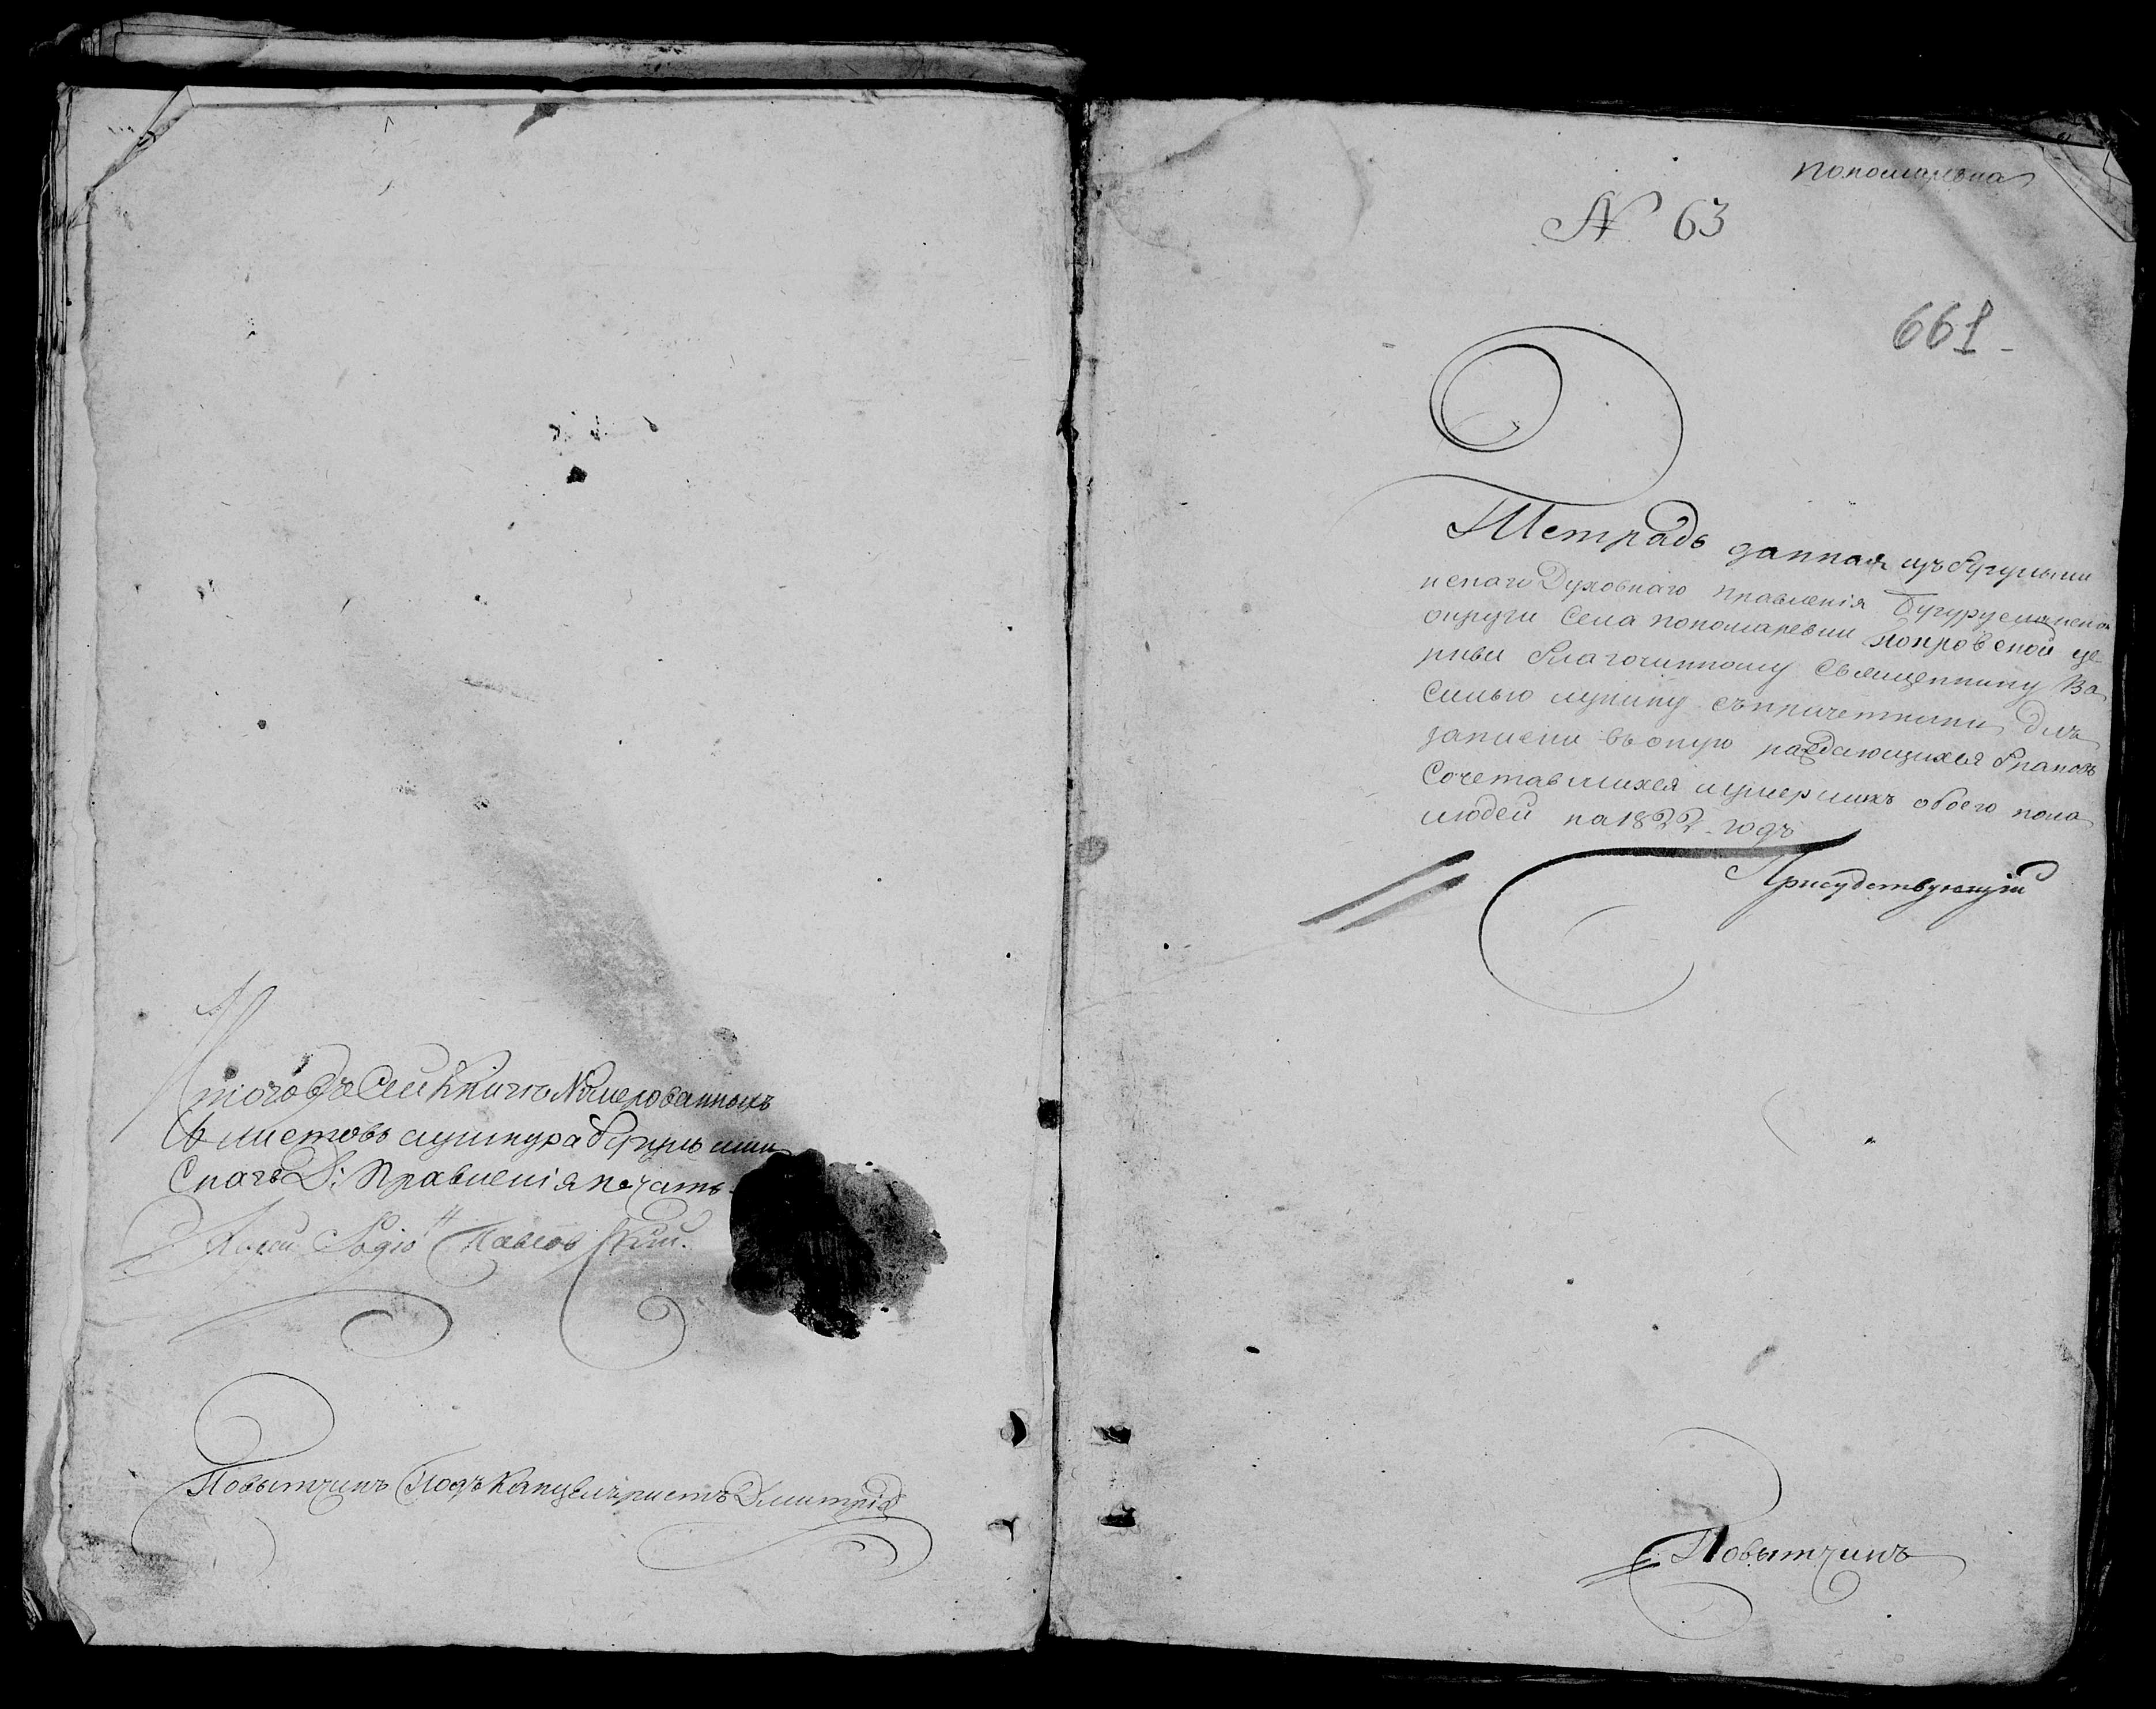 Итого въ сей книге Нумерованныхъ
листовъ  шнура Бугульмин
скагѡ Д: Правленiя печать.
Павловскiй.
Повытчикъ Подъканцеляристъ Дмитрiй
пономаревка
№ 63
661
Тетрадь данная изъ бугульмин
скаго Духовнаго правленiя Бугурусланской
округи села пономаревки покровской це
ркви благочинному священнику Ва
силью лукину съпричетники для
записки въоную раждающихся браком
сочетавшихся иумершихъ обоего пола
людей на 1822. годъ
Присудствующiй
Повытчикъ